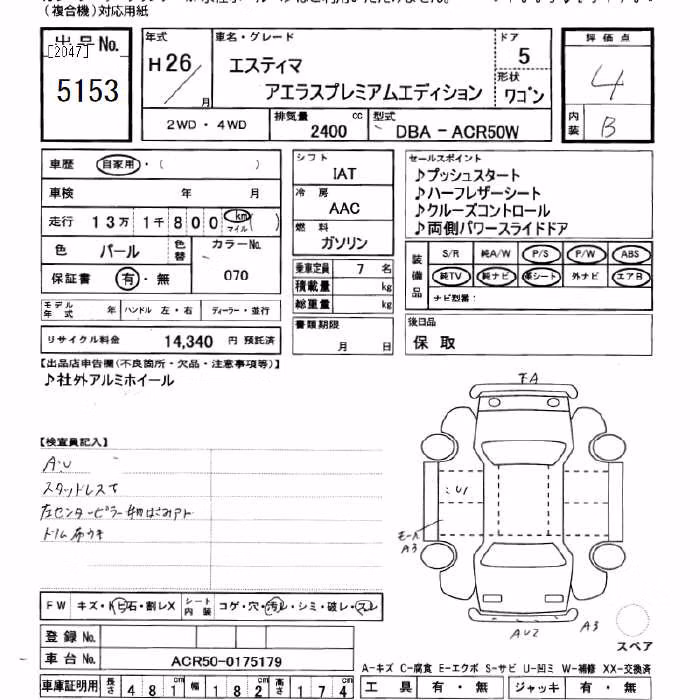 (複合機)対応用紙
出品No.
[2047]
5153
年式
H26/
月
車名・グレード
エスティマ
アエラスプレミアムエディション
ドア
5
形状
ワゴン
評価点
4
内装
B
2WD・4WD
排気量
2400 cc
型式
DBA - ACR50W
車歴
自家用・( )
車検 年 月
走行 13万1千800 km マイル ( )
色 パール
色替
カラーNo.
070
保証書 有・無
シフト
IAT
冷房
AAC
燃料
ガソリン
乗車定員 7 名
積載量 kg
総重量 kg
セールスポイント
♪プッシュスタート
♪ハーフレザーシート
♪クルーズコントロール
♪両側パワースライドドア
装備品
S/R 純A/W P/S P/W ABS
純TV 純ナビ 革シート 外ナビ エアB
ナビ型番:
モデル年式 年 ハンドル 左・右 ディーラー・並行
リサイクル料金 14,340 円 預託済
書類期限
月 日
後日品
保 取
【出品店申告欄(不良箇所・欠品・注意事項等)】
♪社外アルミホイール
【検査員記入】
A・U
スタッドレスT
左センターピラー
ドA
モール
A3
AU2 A3
スペア
FW キズ・ト石・割レX
シート内装 コゲ・穴・汚レ・シミ・破レ・スレ
登録No.
車台No. ACR50-0175179
A-キズ C-腐食 E-エクボ S-サビ U-凹ミ W-補修 XX-交換済
車庫証明用 長さ 481 cm 幅 182 cm 高さ 174 cm
工具 有・無 ジャッキ 有・無